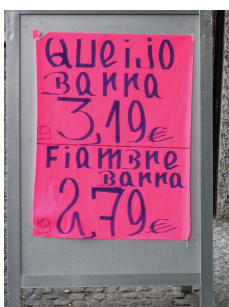 QUeiJo
BaRRa
3,19€
FiaMBRe
BaRRa
2,79€